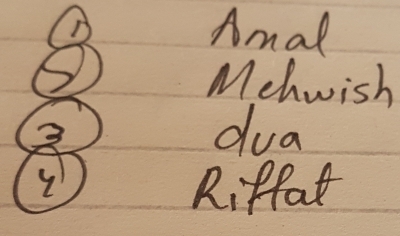 1 Amal
2 Mehwish
3 dua
4 Riffat